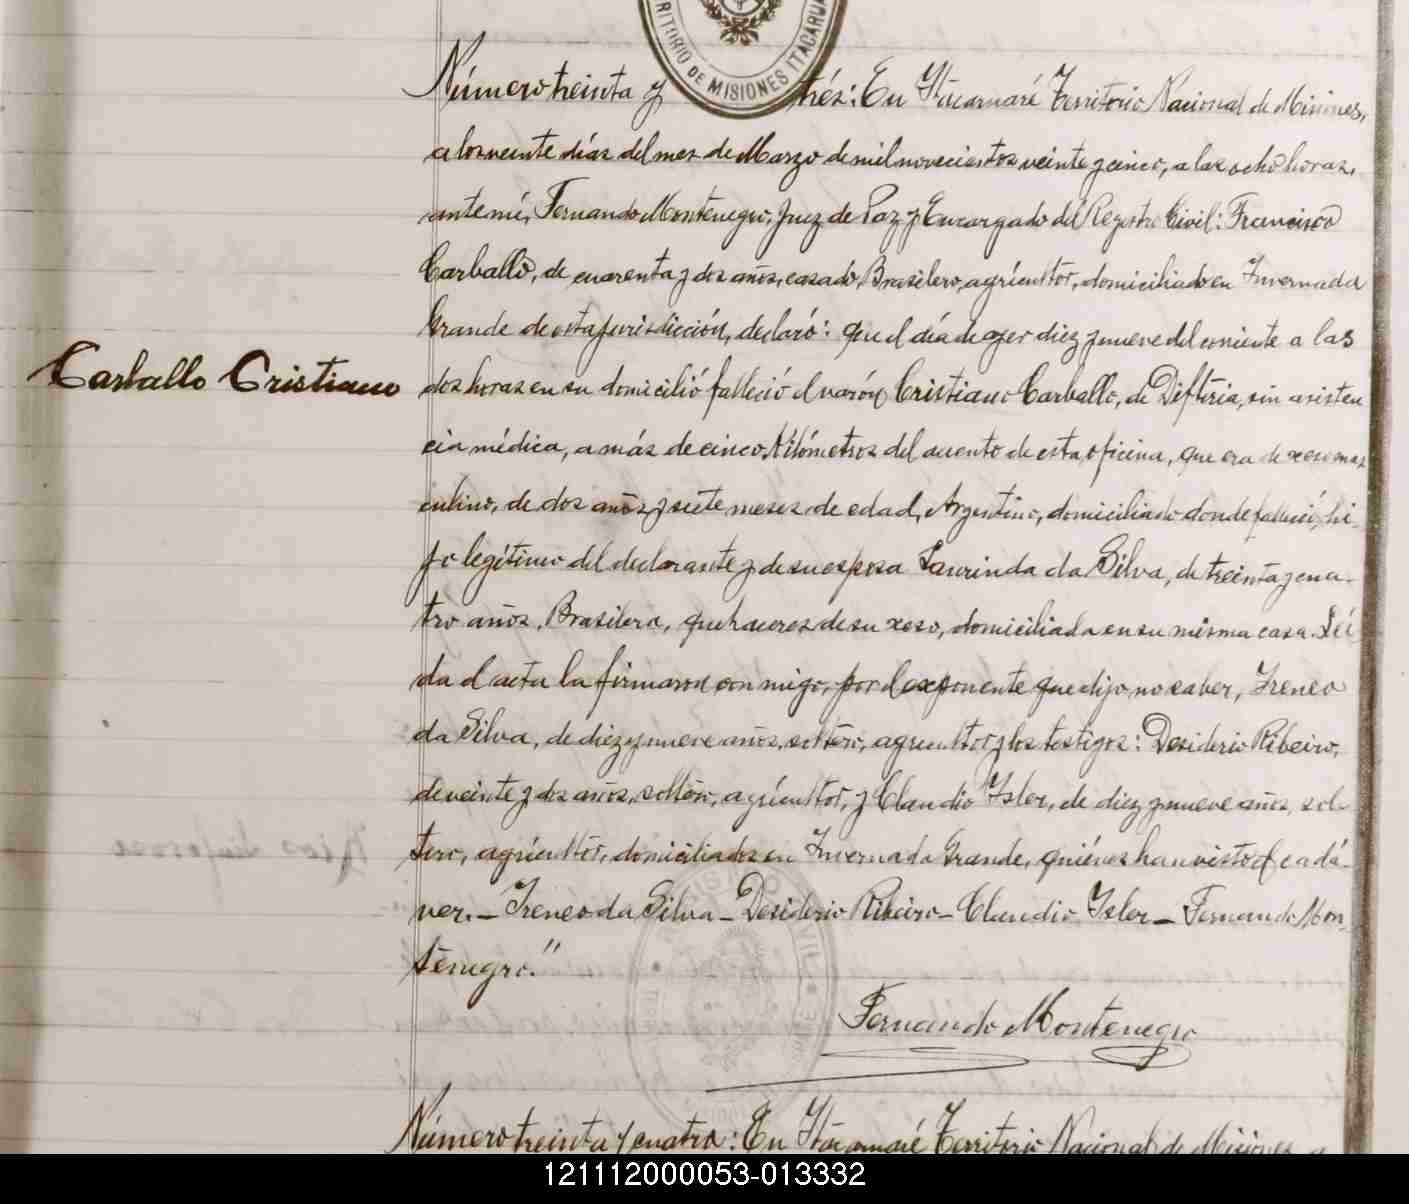 RITORIO DE MISIONES ITACARUA
Número treinta y trés: En Itacaruaré Territorio Nacional de Misiones,
a los veinte días del mes de Marzo de mil novecientos veinte y cinco, a las ocho horas,
ante mí, Fernando Montenegro, Juez de Paz y Encargado del Registro Civil: Francisco
Carballo, de cuarenta y dos años, casado, Brasilero, agrícultor, domiciliado en Invernada
Grande de esta jurisdicción, declaró: que el día de ayer diez y nueve del corriente a las
Carballo Cristiano
dos horas en su domicilió falleció el varón Cristiano Carballo, de Difteria, sin asisten
cia médica, a más de cinco Kilómetros del asiento de esta oficina, que era de xeso mas
culino, de dos años y siete meses de edad, Argentino, domiciliado donde falleció, hi-
jo legítimo del declarante y de su esposa Laurinda da Silva, de treinta y cua-
tro años, Brasilera, quehaceres de su xeso, domiciliada en su misma casa. Leí
da el acta la firmaron con migo, por el exponente que dijo no saber, Ireneo
da Silva, de diez y nueve años, soltero, agricultor y los testigos: Desiderio Ribeiro,
de veinte y dos años, soltero, agrícultor, y Claudio Isler, de diez y nueve años, sol-
tero, agrícultor, domiciliados en Invernada Grande, quiénes han visto el cadá-
ver.- Ireneo da Silva - Desiderio Ribeiro - Claudio Isler - Fernando Mon-
tenegro."
Fernando Montenegro
Número treinta y cuatro: En Itacaruaré Territorio Nacional de Misiones, a
121112000053-013332